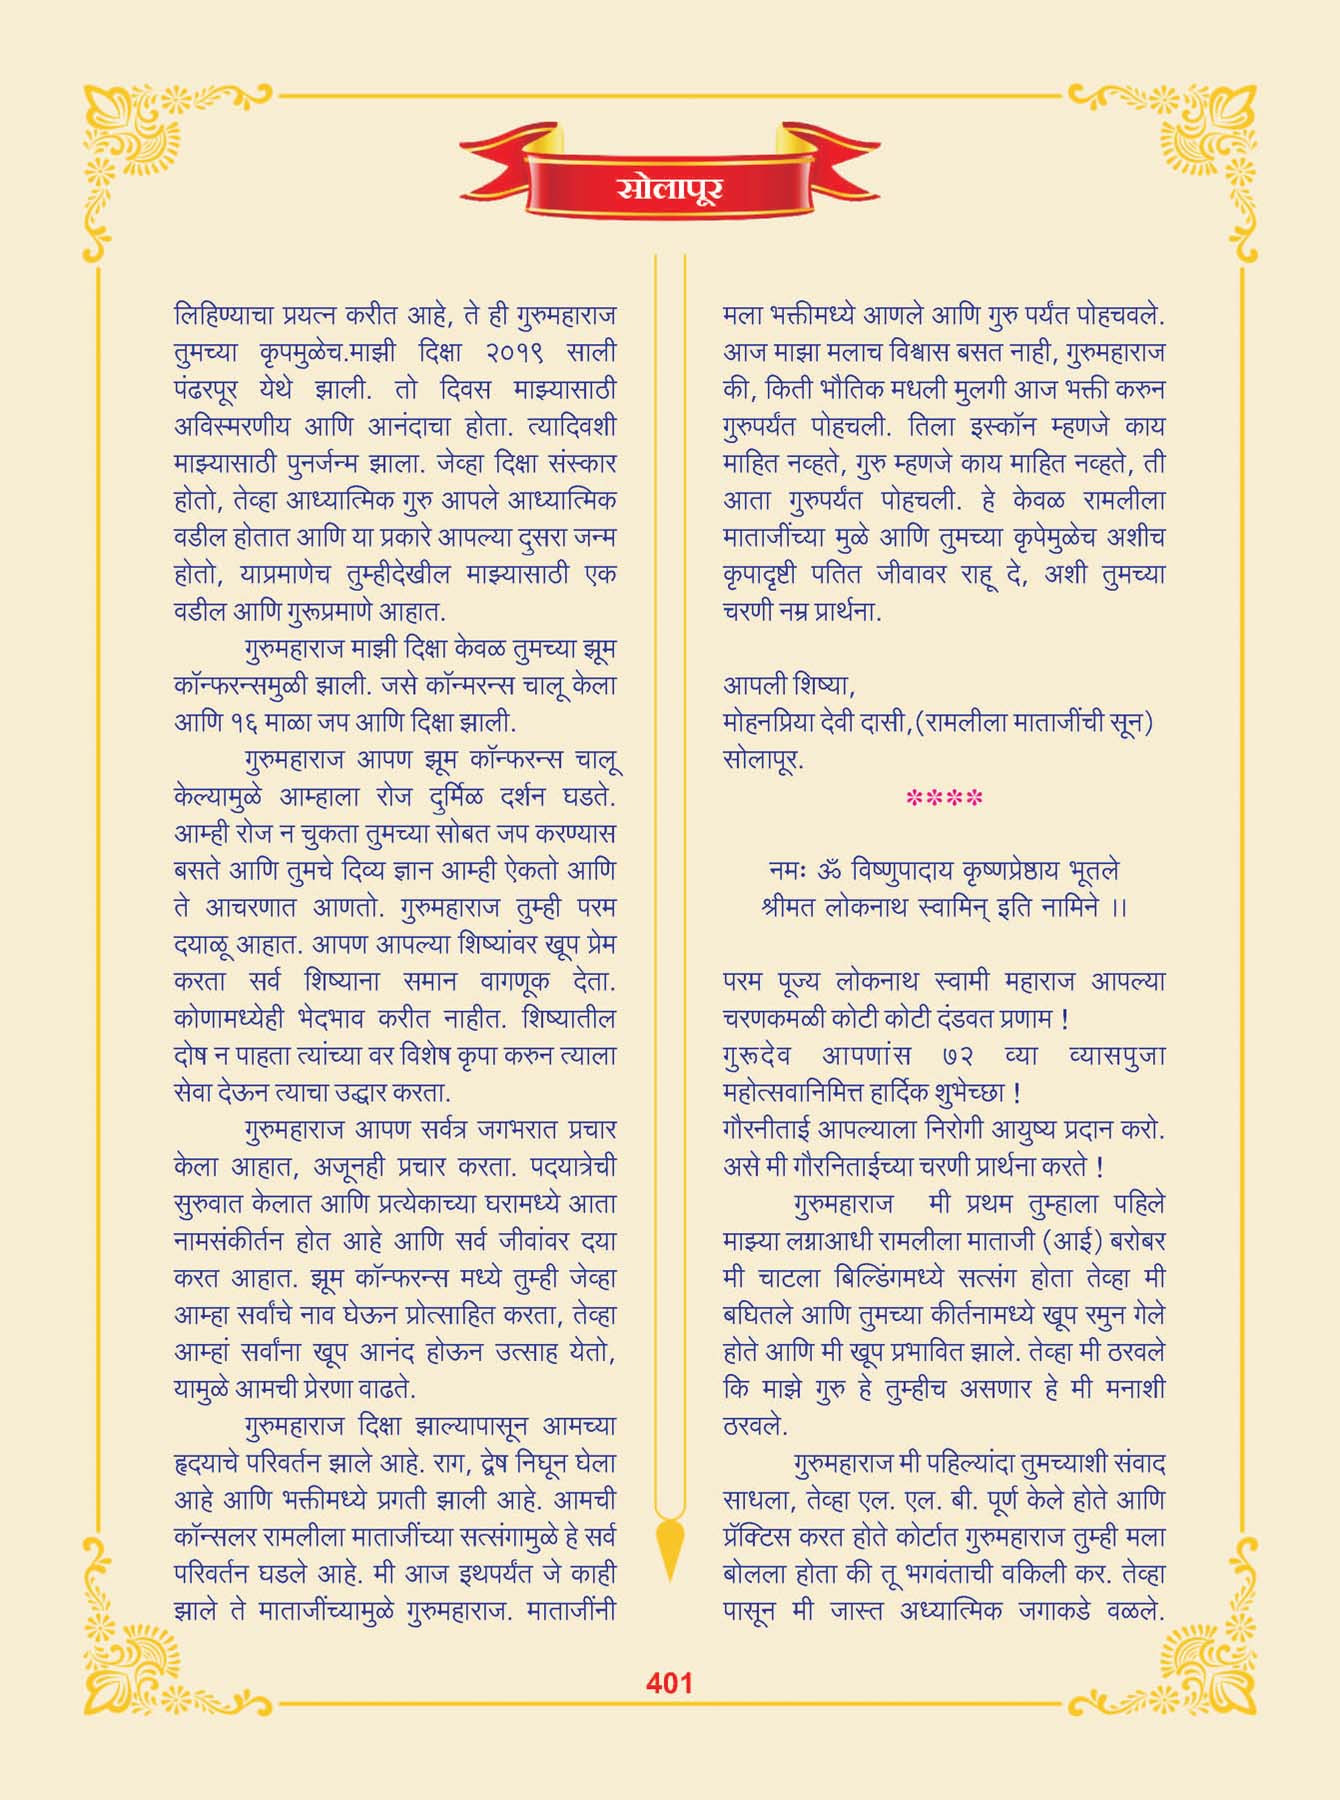 सोलापूर
लिहिण्याचा प्रयत्न करीत आहे, ते ही गुरुमहाराज
तुमच्या कृपमुळेच.माझी दिक्षा २०१९ साली
पंढरपूर येथे झाली. तो दिवस माझ्यासाठी
अविस्मरणीय आणि आनंदाचा होता. त्यादिवशी
माझ्यासाठी पुनर्जन्म झाला. जेव्हा दिक्षा संस्कार
होतो, तेव्हा आध्यात्मिक गुरु आपले आध्यात्मिक
वडील होतात आणि या प्रकारे आपल्या दुसरा जन्म
होतो, याप्रमाणेच तुम्हीदेखील माझ्यासाठी एक
वडील आणि गुरूप्रमाणे आहात.
गुरुमहाराज माझी दिक्षा केवळ तुमच्या झूम
कॉन्फरन्समुळी झाली. जसे कॉन्मरन्स चालू केला
आणि १६ माळा जप आणि दिक्षा झाली.
गुरुमहाराज आपण झूम कॉन्फरन्स चालू
केल्यामुळे आम्हाला रोज दुर्मिळ दर्शन घडते.
आम्ही रोज न चुकता तुमच्या सोबत जप करण्यास
बसते आणि तुमचे दिव्य ज्ञान आम्ही ऐकतो आणि
ते आचरणात आणतो. गुरुमहाराज तुम्ही परम
दयाळू आहात. आपण आपल्या शिष्यांवर खूप प्रेम
करता सर्व शिष्याना समान वागणूक देता.
कोणामध्येही भेदभाव करीत नाहीत. शिष्यातील
दोष न पाहता त्यांच्या वर विशेष कृपा करुन त्याला
सेवा देऊन त्याचा उद्धार करता.
गुरुमहाराज आपण सर्वत्र जगभरात प्रचार
केला आहात, अजूनही प्रचार करता. पदयात्रेची
सुरुवात केलात आणि प्रत्येकाच्या घरामध्ये आता
नामसंकीर्तन होत आहे आणि सर्व जीवांवर दया
करत आहात. झूम कॉन्फरन्स मध्ये तुम्ही जेव्हा
आम्हा सर्वांचे नाव घेऊन प्रोत्साहित करता, तेव्हा
आम्हां सर्वांना खूप आनंद होऊन उत्साह येतो,
यामुळे आमची प्रेरणा वाढते.
गुरुमहाराज दिक्षा झाल्यापासून आमच्या
हृदयाचे परिवर्तन झाले आहे. राग, द्वेष निघून घेला
आहे आणि भक्तीमध्ये प्रगती झाली आहे. आमची
कॉन्सलर रामलीला माताजींच्या सत्संगामुळे हे सर्व
परिवर्तन घडले आहे. मी आज इथपर्यंत जे काही
झाले ते माताजींच्यामुळे गुरुमहाराज. माताजींनी
मला भक्तीमध्ये आणले आणि गुरु पर्यंत पोहचवले.
आज माझा मलाच विश्वास बसत नाही, गुरुमहाराज
की, किती भौतिक मधली मुलगी आज भक्ती करुन
गुरुपर्यंत पोहचली. तिला इस्कॉन म्हणजे काय
माहित नव्हते, गुरु म्हणजे काय माहित नव्हते, ती
आता गुरुपर्यंत पोहचली. हे केवळ रामलीला
माताजींच्या मुळे आणि तुमच्या कृपेमुळेच अशीच
कृपादृष्टी पतित जीवावर राहू दे, अशी तुमच्या
चरणी नम्र प्रार्थना.
आपली शिष्या,
मोहनप्रिया देवी दासी,(रामलीला माताजींची सून)
सोलापूर.
****
नमः ॐ विष्णुपादाय कृष्णप्रेष्ठाय भूतले
श्रीमत लोकनाथ स्वामिन् इति नामिने ।।
परम पूज्य लोकनाथ स्वामी महाराज आपल्या
चरणकमळी कोटी कोटी दंडवत प्रणाम !
गुरूदेव आपणांस ७२ व्या व्यासपुजा
महोत्सवानिमित्त हार्दिक शुभेच्छा !
गौरनीताई आपल्याला निरोगी आयुष्य प्रदान करो.
असे मी गौरनिताईच्या चरणी प्रार्थना करते !
गुरुमहाराज मी प्रथम तुम्हाला पहिले
माझ्या लग्नाआधी रामलीला माताजी (आई) बरोबर
मी चाटला बिल्डिंगमध्ये सत्संग होता तेव्हा मी
बघितले आणि तुमच्या कीर्तनामध्ये खूप रमुन गेले
होते आणि मी खूप प्रभावित झाले. तेव्हा मी ठरवले
कि माझे गुरु हे तुम्हीच असणार हे मी मनाशी
ठरवले.
गुरुमहाराज मी पहिल्यांदा तुमच्याशी संवाद
साधला, तेव्हा एल. एल. बी. पूर्ण केले होते आणि
प्रॅक्टिस करत होते कोर्टात गुरुमहाराज तुम्ही मला
बोलला होता की तू भगवंताची वकिली कर. तेव्हा
पासून मी जास्त अध्यात्मिक जगाकडे वळले.
401